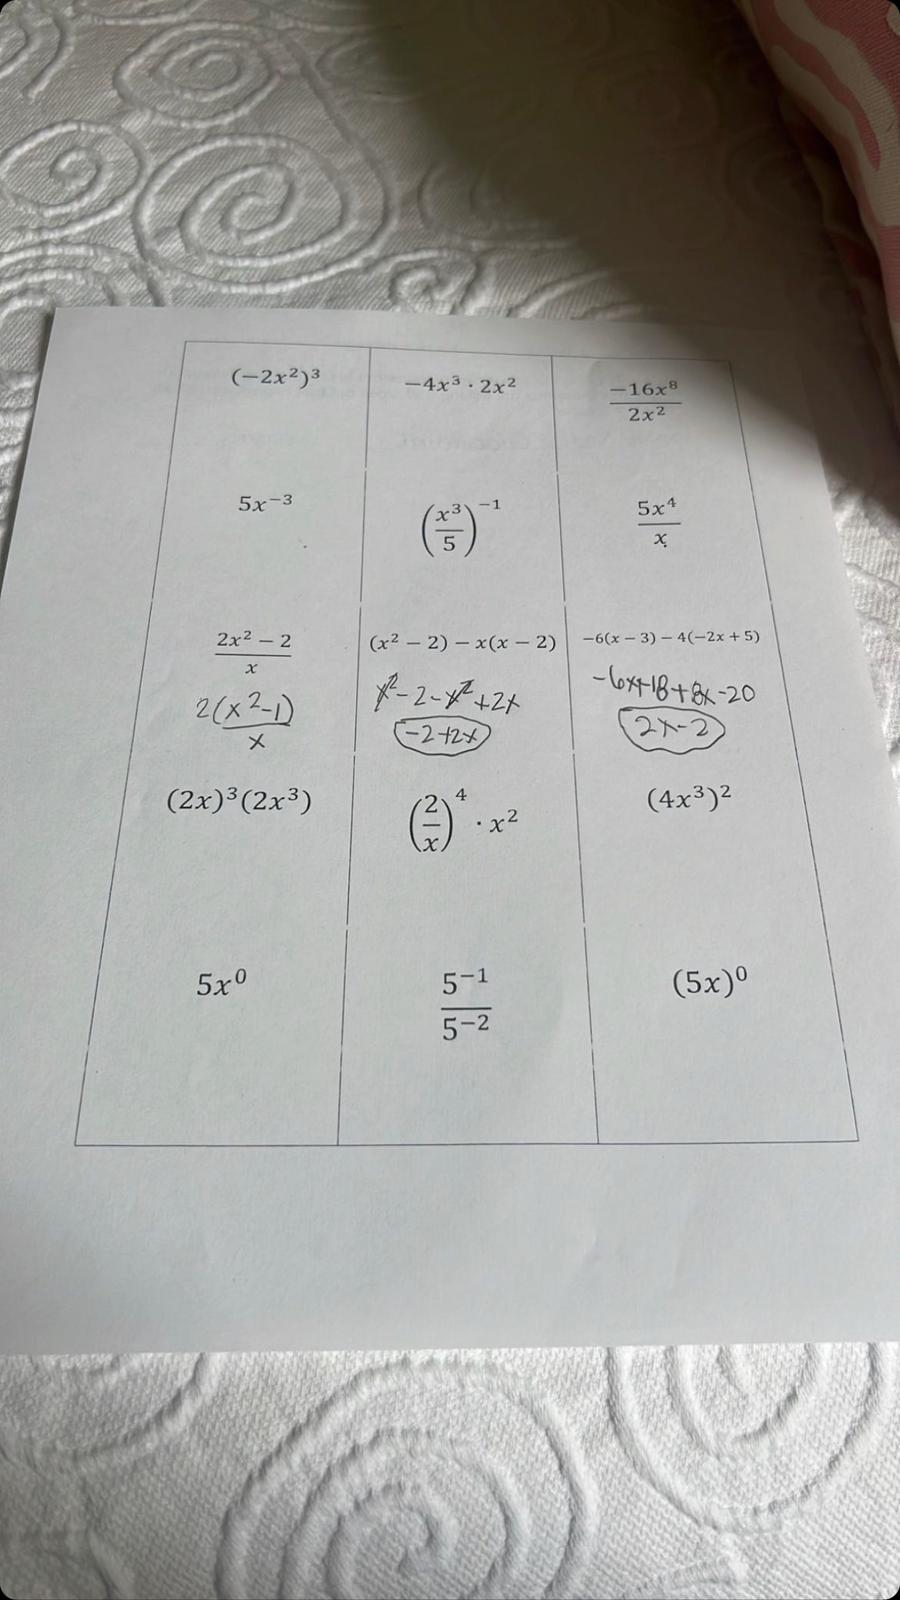 (−2x²)³ −4x³ · 2x² −16x⁸/2x²
5x⁻³ (x³/5)⁻¹ 5x⁴/x
2x² − 2/x (x² − 2) − x(x − 2) −6(x − 3) − 4(−2x + 5)
2(x²-1)/x x²-2-x²+2x -6x+18+8x-20
-2+2x 2x-2
(2x)³(2x³) (2/x)⁴ · x² (4x³)²
5x⁰ 5⁻¹/5⁻² (5x)⁰